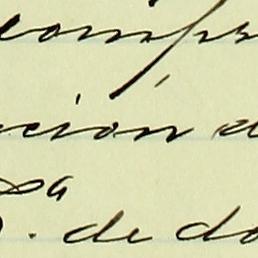 compr
ción d
S.ª de do